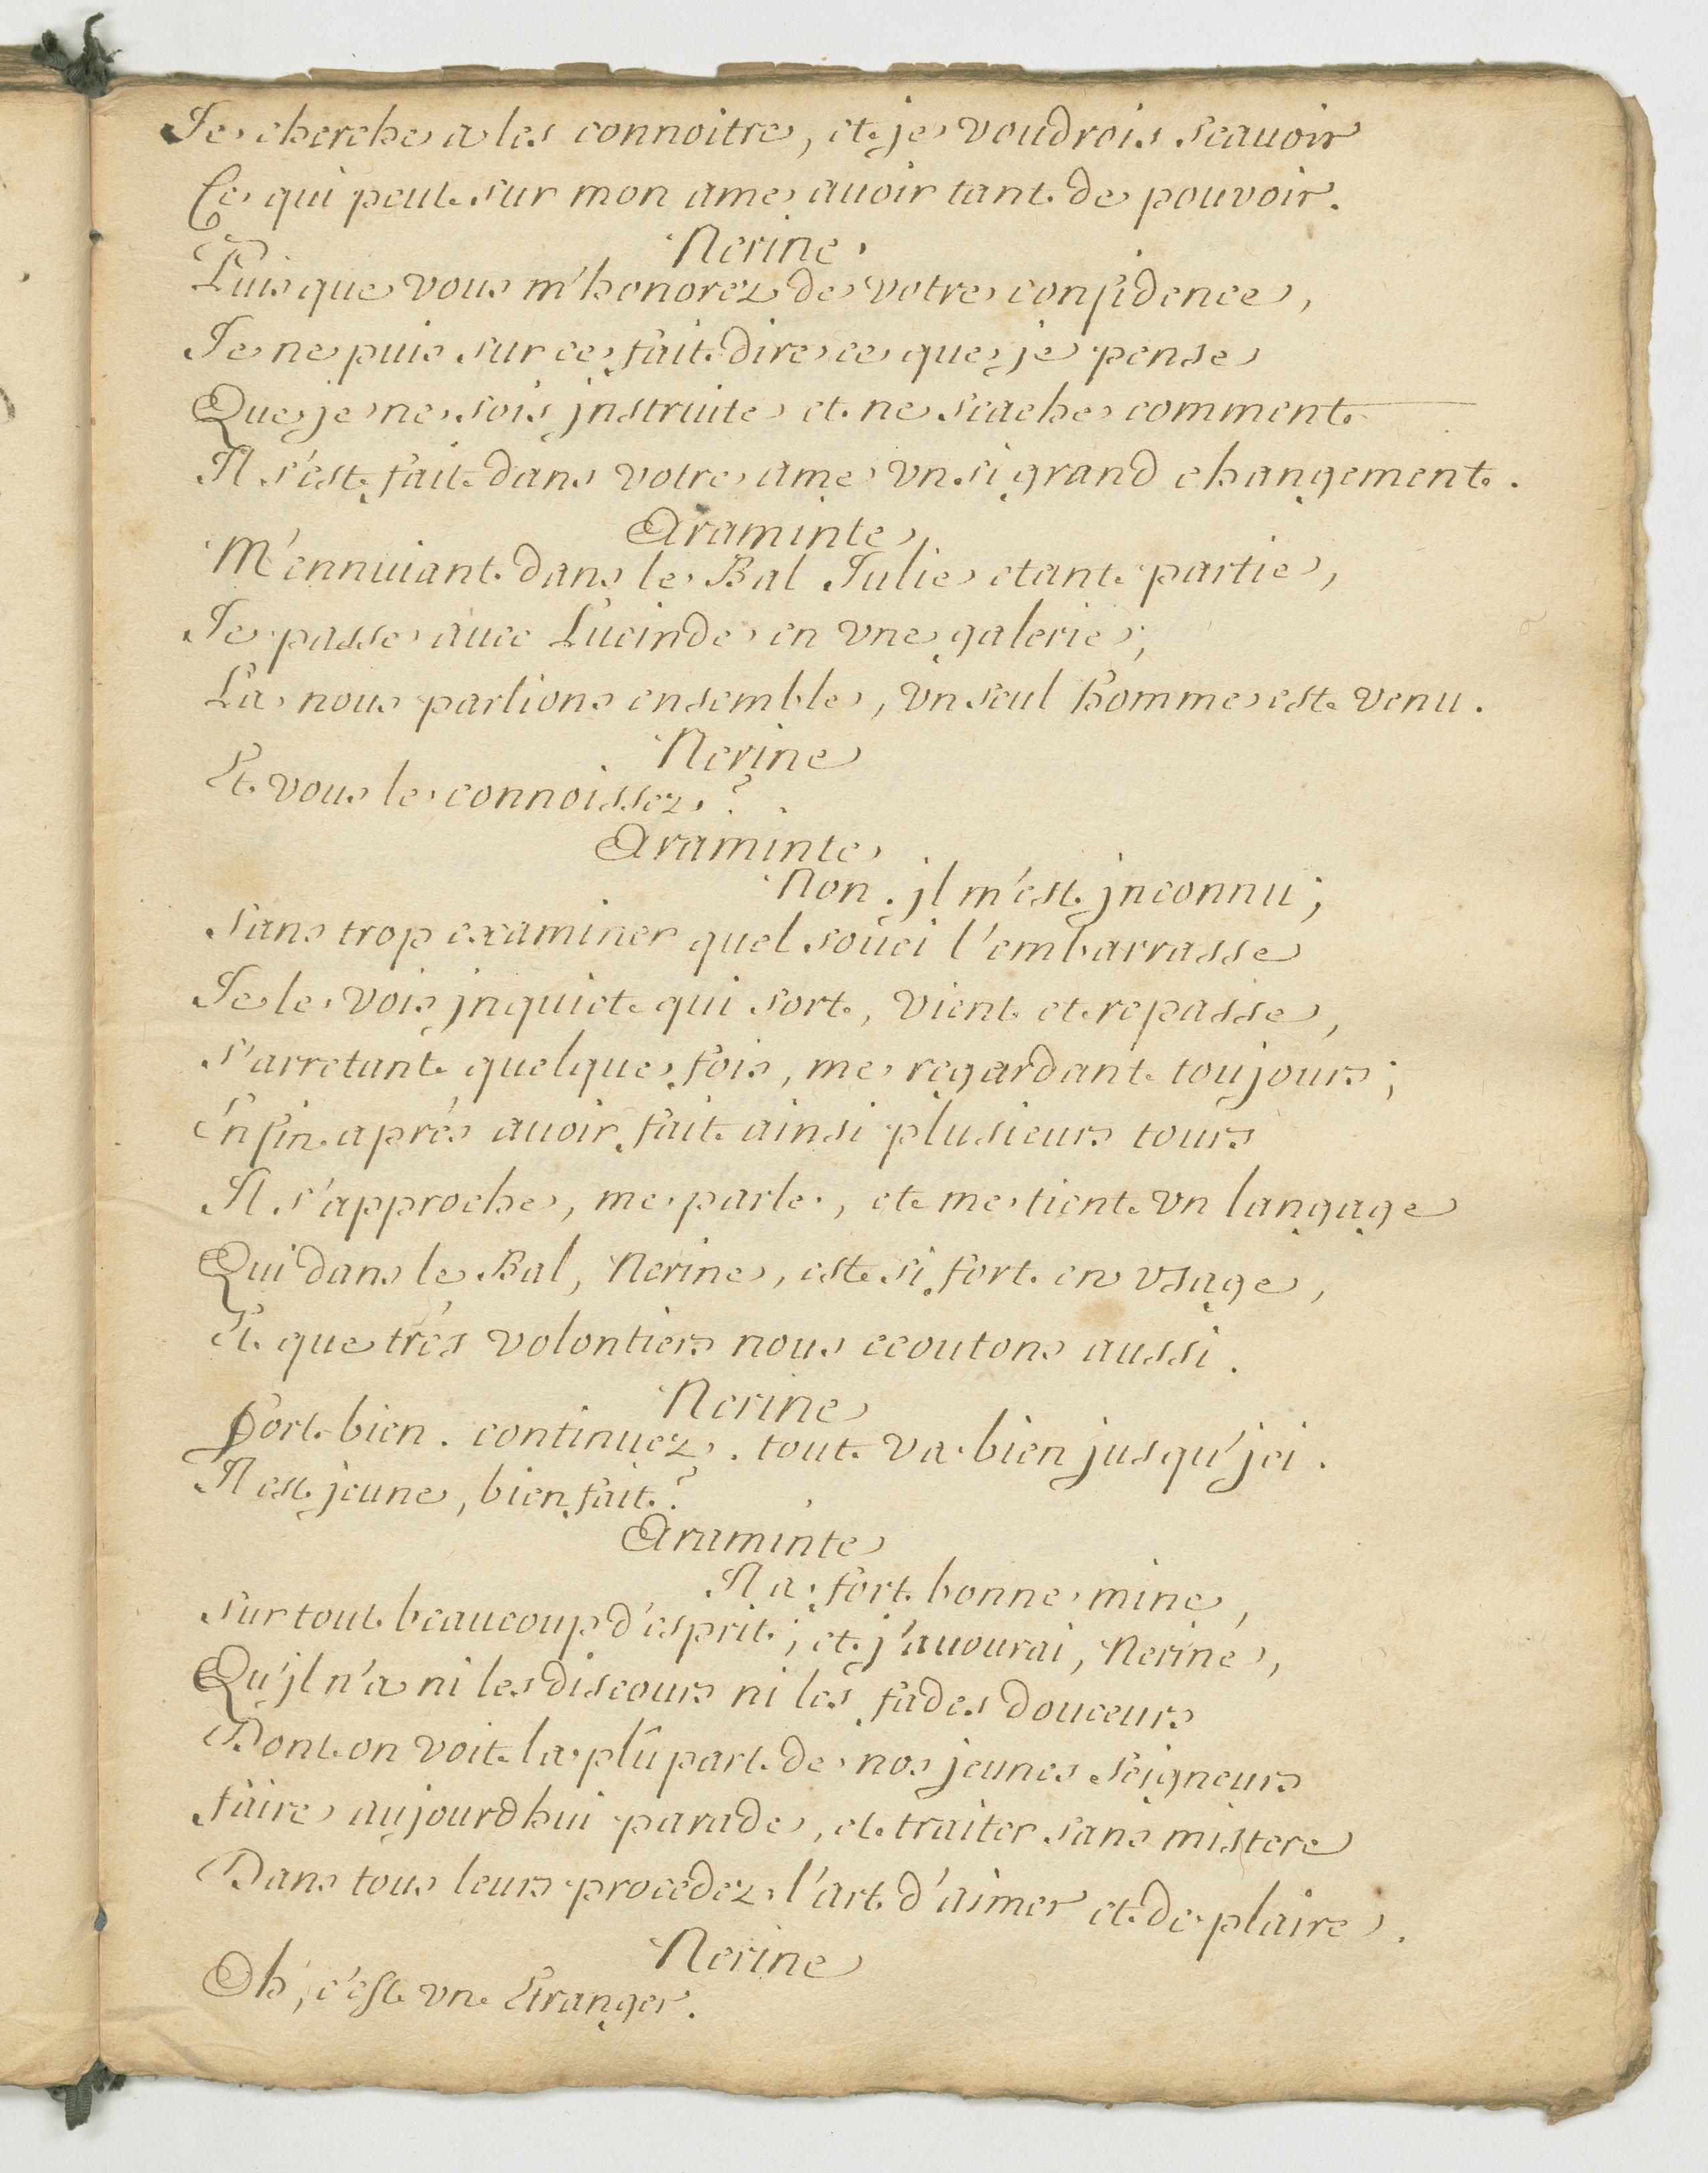 Je cherche a les connoitre, et je voudrois scauoir
Ce qui peut sur mon ame auoir tant de pouvoir.
Nerine
Puis que vous m'honorez de votre confidence,
Je ne puis sur ce fait dire ce que je pense
Que je ne sois jnstruite et ne scache comment
Il s'est fait dans votre ame vn si grand changement.
Araminte
M'ennuiant dans le Bal Julie etant partie,
Je passe auec Lucinde en vne galerie;
La nous parlions ensemble, vn seul homme est venu.
Nerine
Et vous le connoissez?
Araminte
Non. jl m'est jnconnu;
Sans trop examiner quel souci l'embarrasse
Je le vois jnquiet qui sort, vient et repasse,
S'arretant quelque fois, me regardant toujours;
Enfin aprés auoir fait ainsi plusieurs tours
Il s'approche, me parle, et me tient vn langage
Qui dans le Bal, Nerine, est si fort en vsage,
Et que trés volontiers nous ecoutons aussi.
Nerine
Fort bien. continuez. tout va bien jusqu'jci.
Il est jeune, bien fait?
Araminte
Il a fort bonne mine,
Sur tout beaucoup d'esprit; et j'auourai, Nerine,
Qu'jl n'a ni les discours ni les fades douceurs
Dont on voit la plûpart de nos jeunes Seigneurs
Faire aujourdhui parade, et traiter sans mistere
Dans tous leurs procédez l'art d'aimer et de plaire.
Nerine
Oh, c'est vn Etranger.